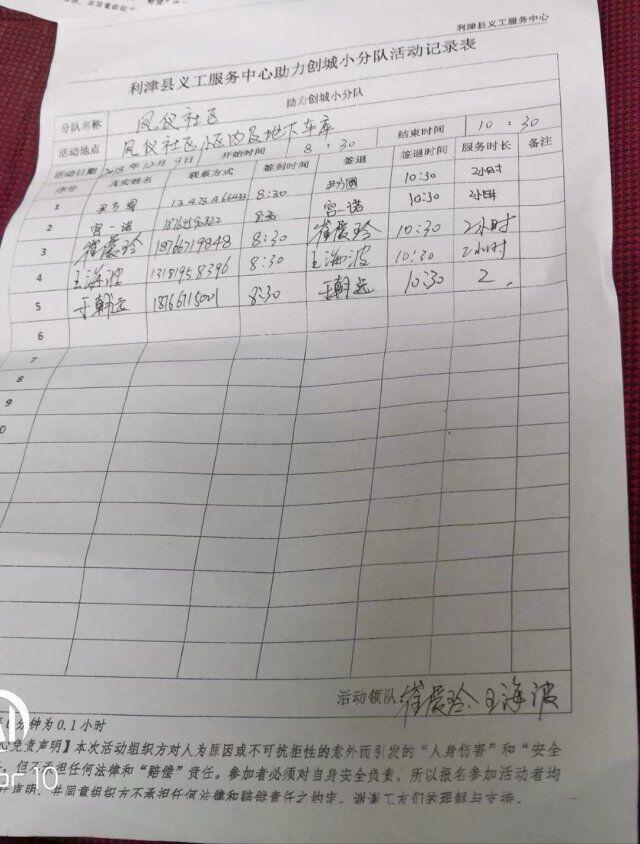 利津县义工服务中心
利津县义工服务中心助力创城小分队活动记录表
分队名称 凤仪社区 助力创城小分队
活动地点 凤仪社区小区内及地下车库
活动日期 2018年12月9日 开始时间 8:30 结束时间 10:30
序号 真实姓名 联系方式 签到时间 签退 签退时间 服务时长 备注
1 8:30 10:30 2小时
2 宫一诺 8:30 宫一诺 10:30 2小时
3 崔爱玲 18766719848 8:30 崔爱玲 10:30 2小时
4 王海波 13181958396 8:30 王海波 10:30 2小时
5 8:30 10:30 2
6
7
8
9
活动领队: 崔爱玲、王海波
分钟为0.1小时
免责声明】本次活动组织方对人为原因或不可抗拒性的意外而引发的“人身伤害”和“安全
但不承担任何法律和“赔偿”责任。参加者必须对自身安全负责，所以报名参加活动者均
声明，并同意组织方不承担任何法律和赔偿责任之约定。谢谢工友们的理解与支持。